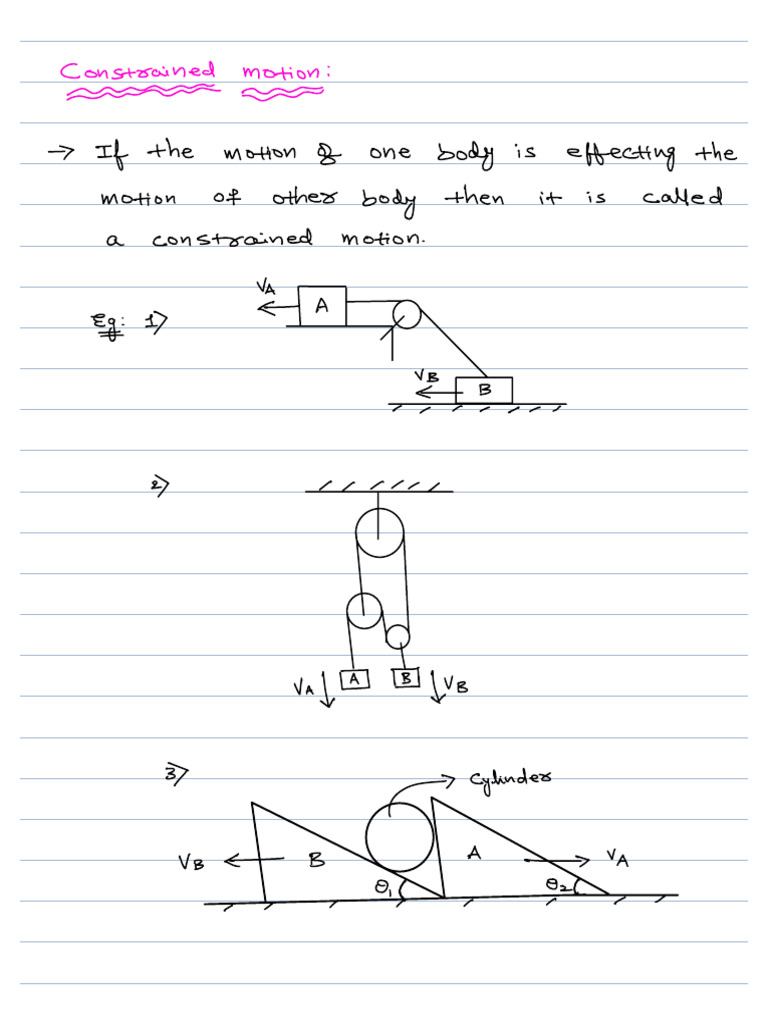 Constrained motion:
→ If the motion of one body is effecting the
motion of other body then it is called
a constrained motion.
Eg: 1)
VA
A
VB
B
2)
VA
A
B
VB
3)
Cylinder
VB
B
A
VA
θ1
θ2